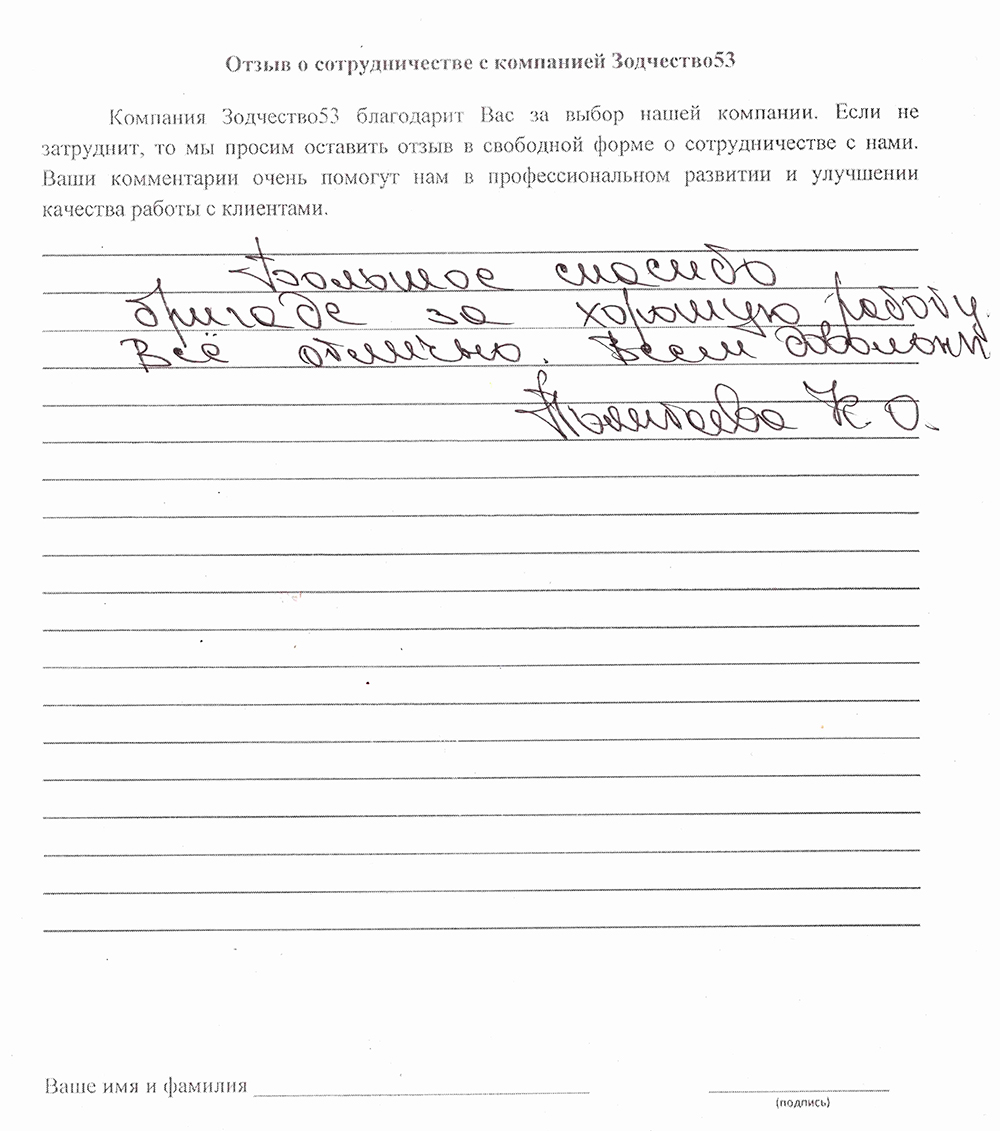 Отзыв о сотрудничестве с компанией Зодчество53
Компания Зодчество53 благодарит Вас за выбор нашей компании. Если не
затруднит, то мы просим оставить отзыв в свободной форме о сотрудничестве с нами.
Ваши комментарии очень помогут нам в профессиональном развитии и улучшении
качества работы с клиентами.
Большое спасибо
бригаде за хорошую работу.
Всё отлично. Всем довольны
К. О.
Ваше имя и фамилия
(подпись)